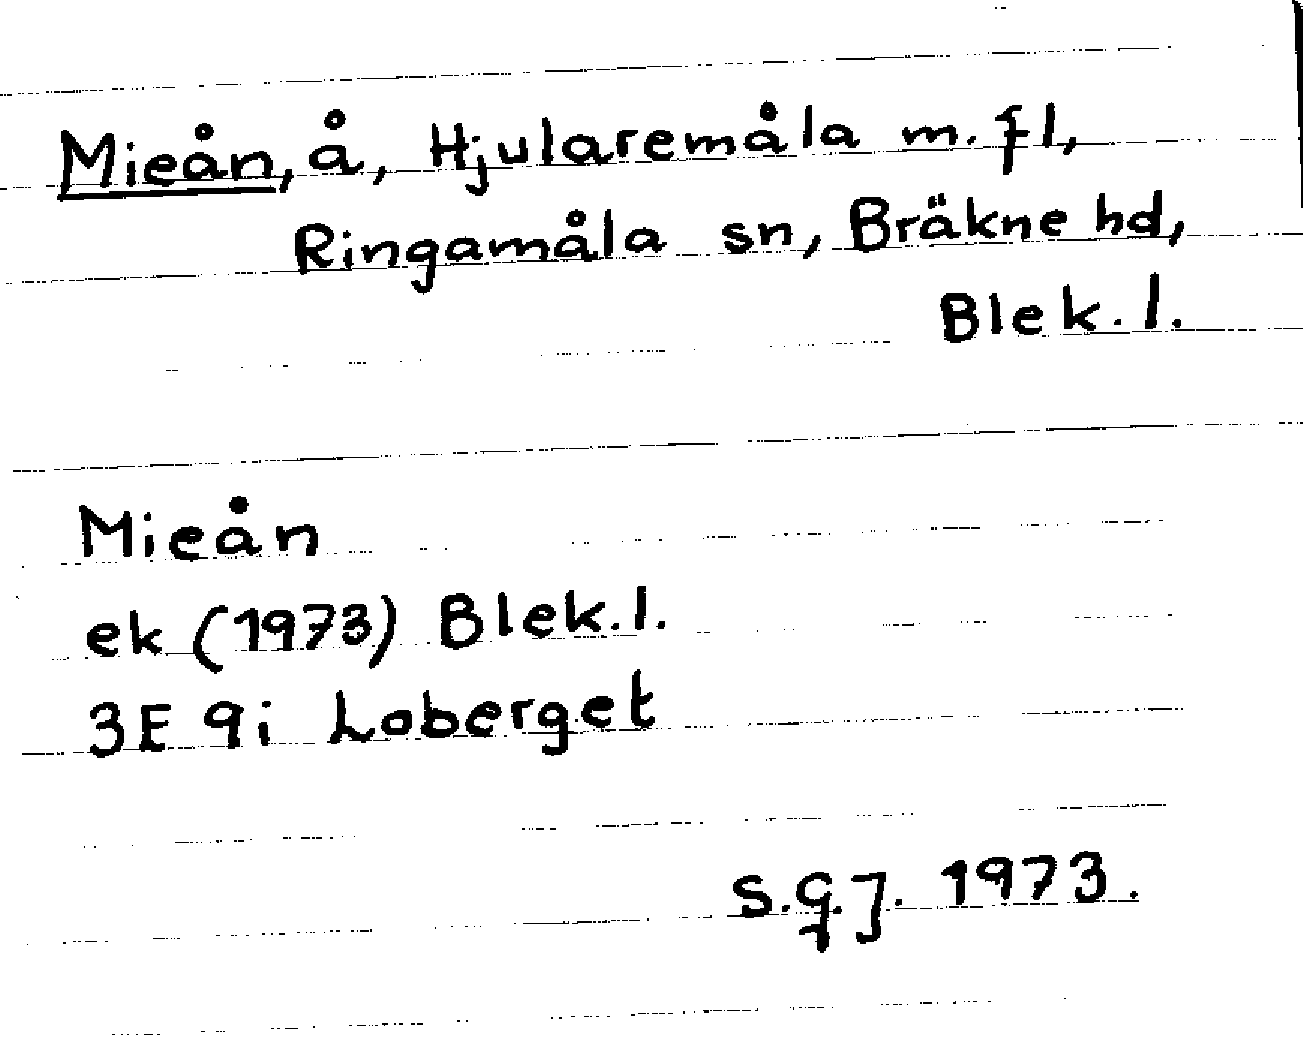 Mieån, å, Hjularemåla m.fl,
Ringamåla sn, Bräkne hd,
Blek.l.
Mieån
ek (1973) Blek.l.
3E 9i Loberget
S.G.J. 1973.